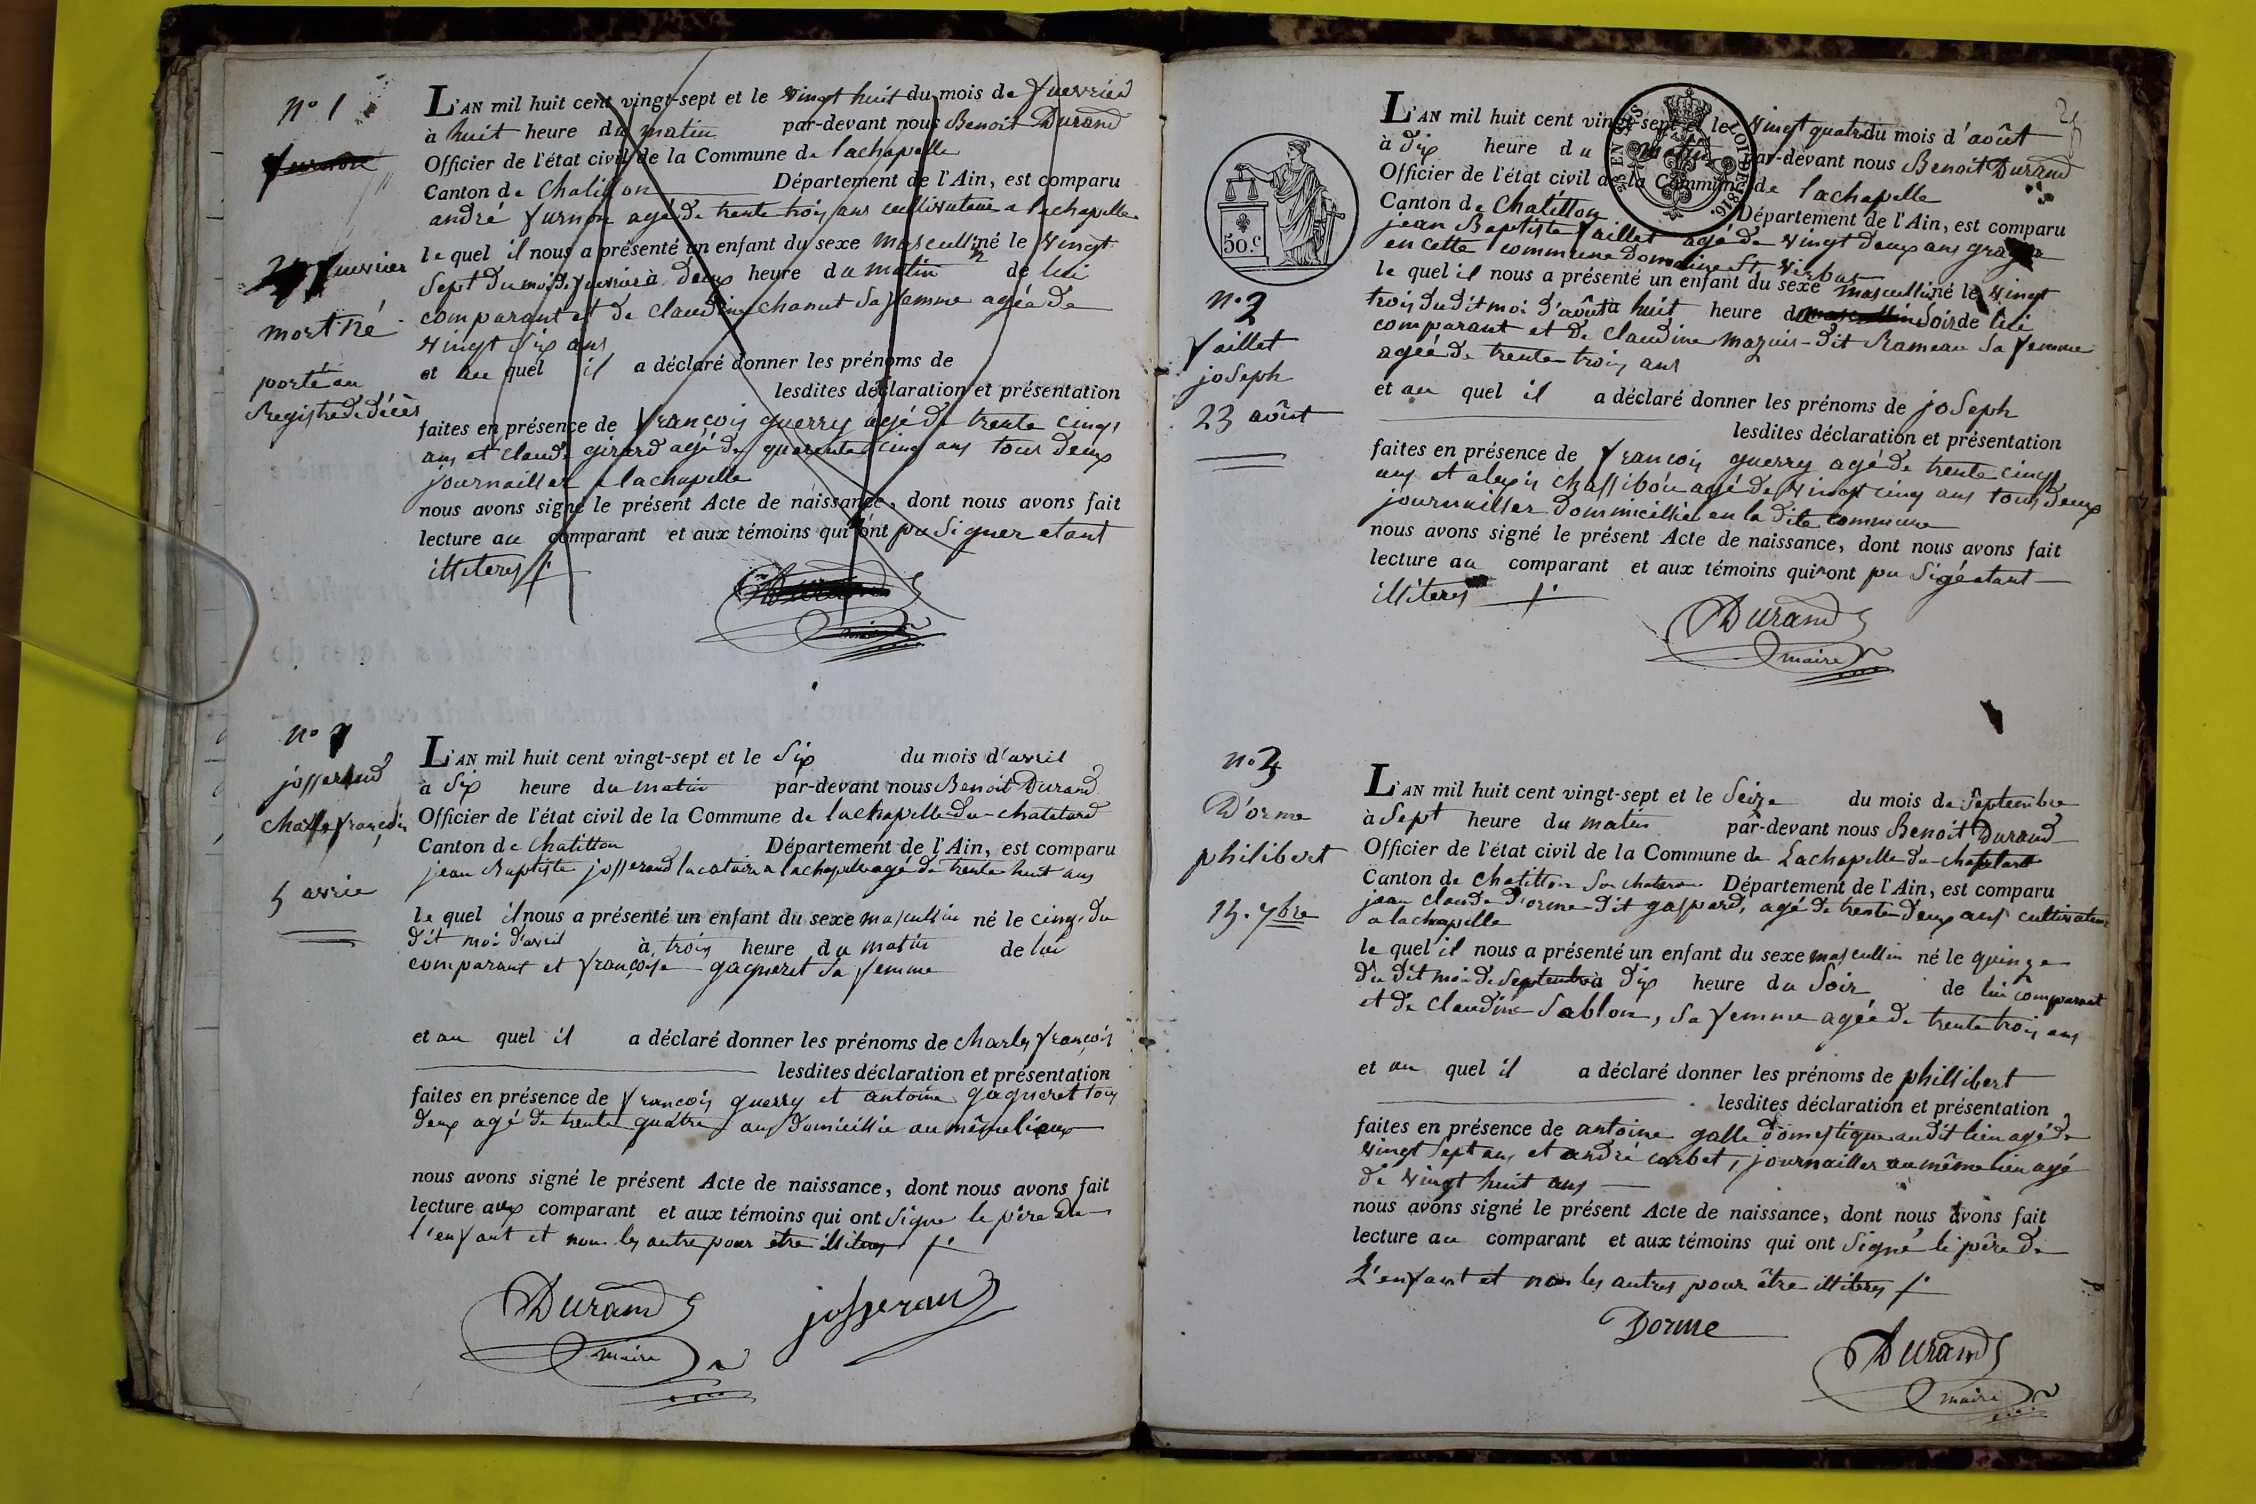 n° 1
furnon
27 fuvrier
mort né
porté au
Registre de décès
L'AN mil huit cent vingt-sept et le vingt huit du mois de fuvrier
à huit heure du matin par-devant nous Benoit Durand
Officier de l'état civil de la Commune de lachapelle
Canton de Chatillon Département de l'Ain, est comparu
andré furnon agé de trente trois ans cultivateur a lachapelle
le quel il nous a présenté un enfant du sexe mascullin né le vingt
sept du moi de fuvrier à deux heure du matin de lui
comparant et de claudine chanut sa femme agée de
vingt six ans
et au quel il a déclaré donner les prénoms de
lesdites déclaration et présentation
faites en présence de françois guerry agé de trente cinq
ans et claude girard agé de quarente cinq ans tous deux
journaillier a lachapelle
nous avons signé le présent Acte de naissance, dont nous avons fait
lecture au comparant et aux témoins qui n'ont pu signer etant
illiteres
Durand
maire
n°
josserand
charle françois
5 avrie
L'AN mil huit cent vingt-sept et le six du mois d'avril
à six heure du matin par-devant nous Benoit Durand
Officier de l'état civil de la Commune de lachapelle du-chatelard
Canton de chatillon Département de l'Ain, est comparu
jean Baptiste josserand locataire a lachapelle agé de trente huit ans
le quel il nous a présenté un enfant du sexe mascullin né le cinq du
dit moi d'avril à trois heure du matin de lui
comparant et françoise gagneret sa femme
et au quel il a déclaré donner les prénoms de charles françois
lesdites déclaration et présentation
faites en présence de françois guerry et antoine gagneret tous
deux agé de trente quatre ans domicillié au même lieux
nous avons signé le présent Acte de naissance, dont nous avons fait
lecture aux comparant et aux témoins qui ont signé le père de
l'enfant et non les autre pour etre illiteres
Durand
maire
josserand
TIMBRE
50.c
EN SUS
LOI DE 1816.
n° 2
faillet
joseph
23 août
L'AN mil huit cent vingt-sept et le vingt quatre du mois d'août
à dix heure du matin par-devant nous Benoit Durand
Officier de l'état civil de la Commune de lachapelle
Canton de Chatillon Département de l'Ain, est comparu
jean Baptiste faillet agé de vingt deux ans
en cette commune domaine st
le quel il nous a présenté un enfant du sexe mascullin né le vingt
trois du dit moi d'août à huit heure du soir de lui
comparant et de claudine mazuir dit Rameau sa femme
agée de trente trois ans
et au quel il a déclaré donner les prénoms de joseph
lesdites déclaration et présentation
faites en présence de françois guerry agé de trente cinq
ans et alexis chassibou agé de vingt cinq ans tous deux
journaillier dommicillié en la dite commune
nous avons signé le présent Acte de naissance, dont nous avons fait
lecture au comparant et aux témoins qui n'ont pu sigé etant
illiteres
Durand
maire
n° 3
D'orme
philibert
15. 7bre
L'AN mil huit cent vingt-sept et le seize du mois de septembre
à sept heure du matin par-devant nous Benoit Durand
Officier de l'état civil de la Commune de Lachapelle du-chatelard
Canton de chatillon Département de l'Ain, est comparu
jean claude D'orme dit gaspard, agé de trente deux ans cultivateur
a lachapelle
le quel il nous a présenté un enfant du sexe mascullin né le quinze
du dit moi de septembre à dix heure du soir de lui comparant
et de claudine sablon, sa femme agée de trente trois ans
et au quel il a déclaré donner les prénoms de phillibert
lesdites déclaration et présentation
faites en présence de antoine galle domestique au dit lieu agé de
vingt sept ans et andré corbet, journaillier au même lieu agé
de vingt huit ans
nous avons signé le présent Acte de naissance, dont nous avons fait
lecture au comparant et aux témoins qui ont signé le père de
L'enfant et non les autres pour être illiteres
Dorme
Durand
maire